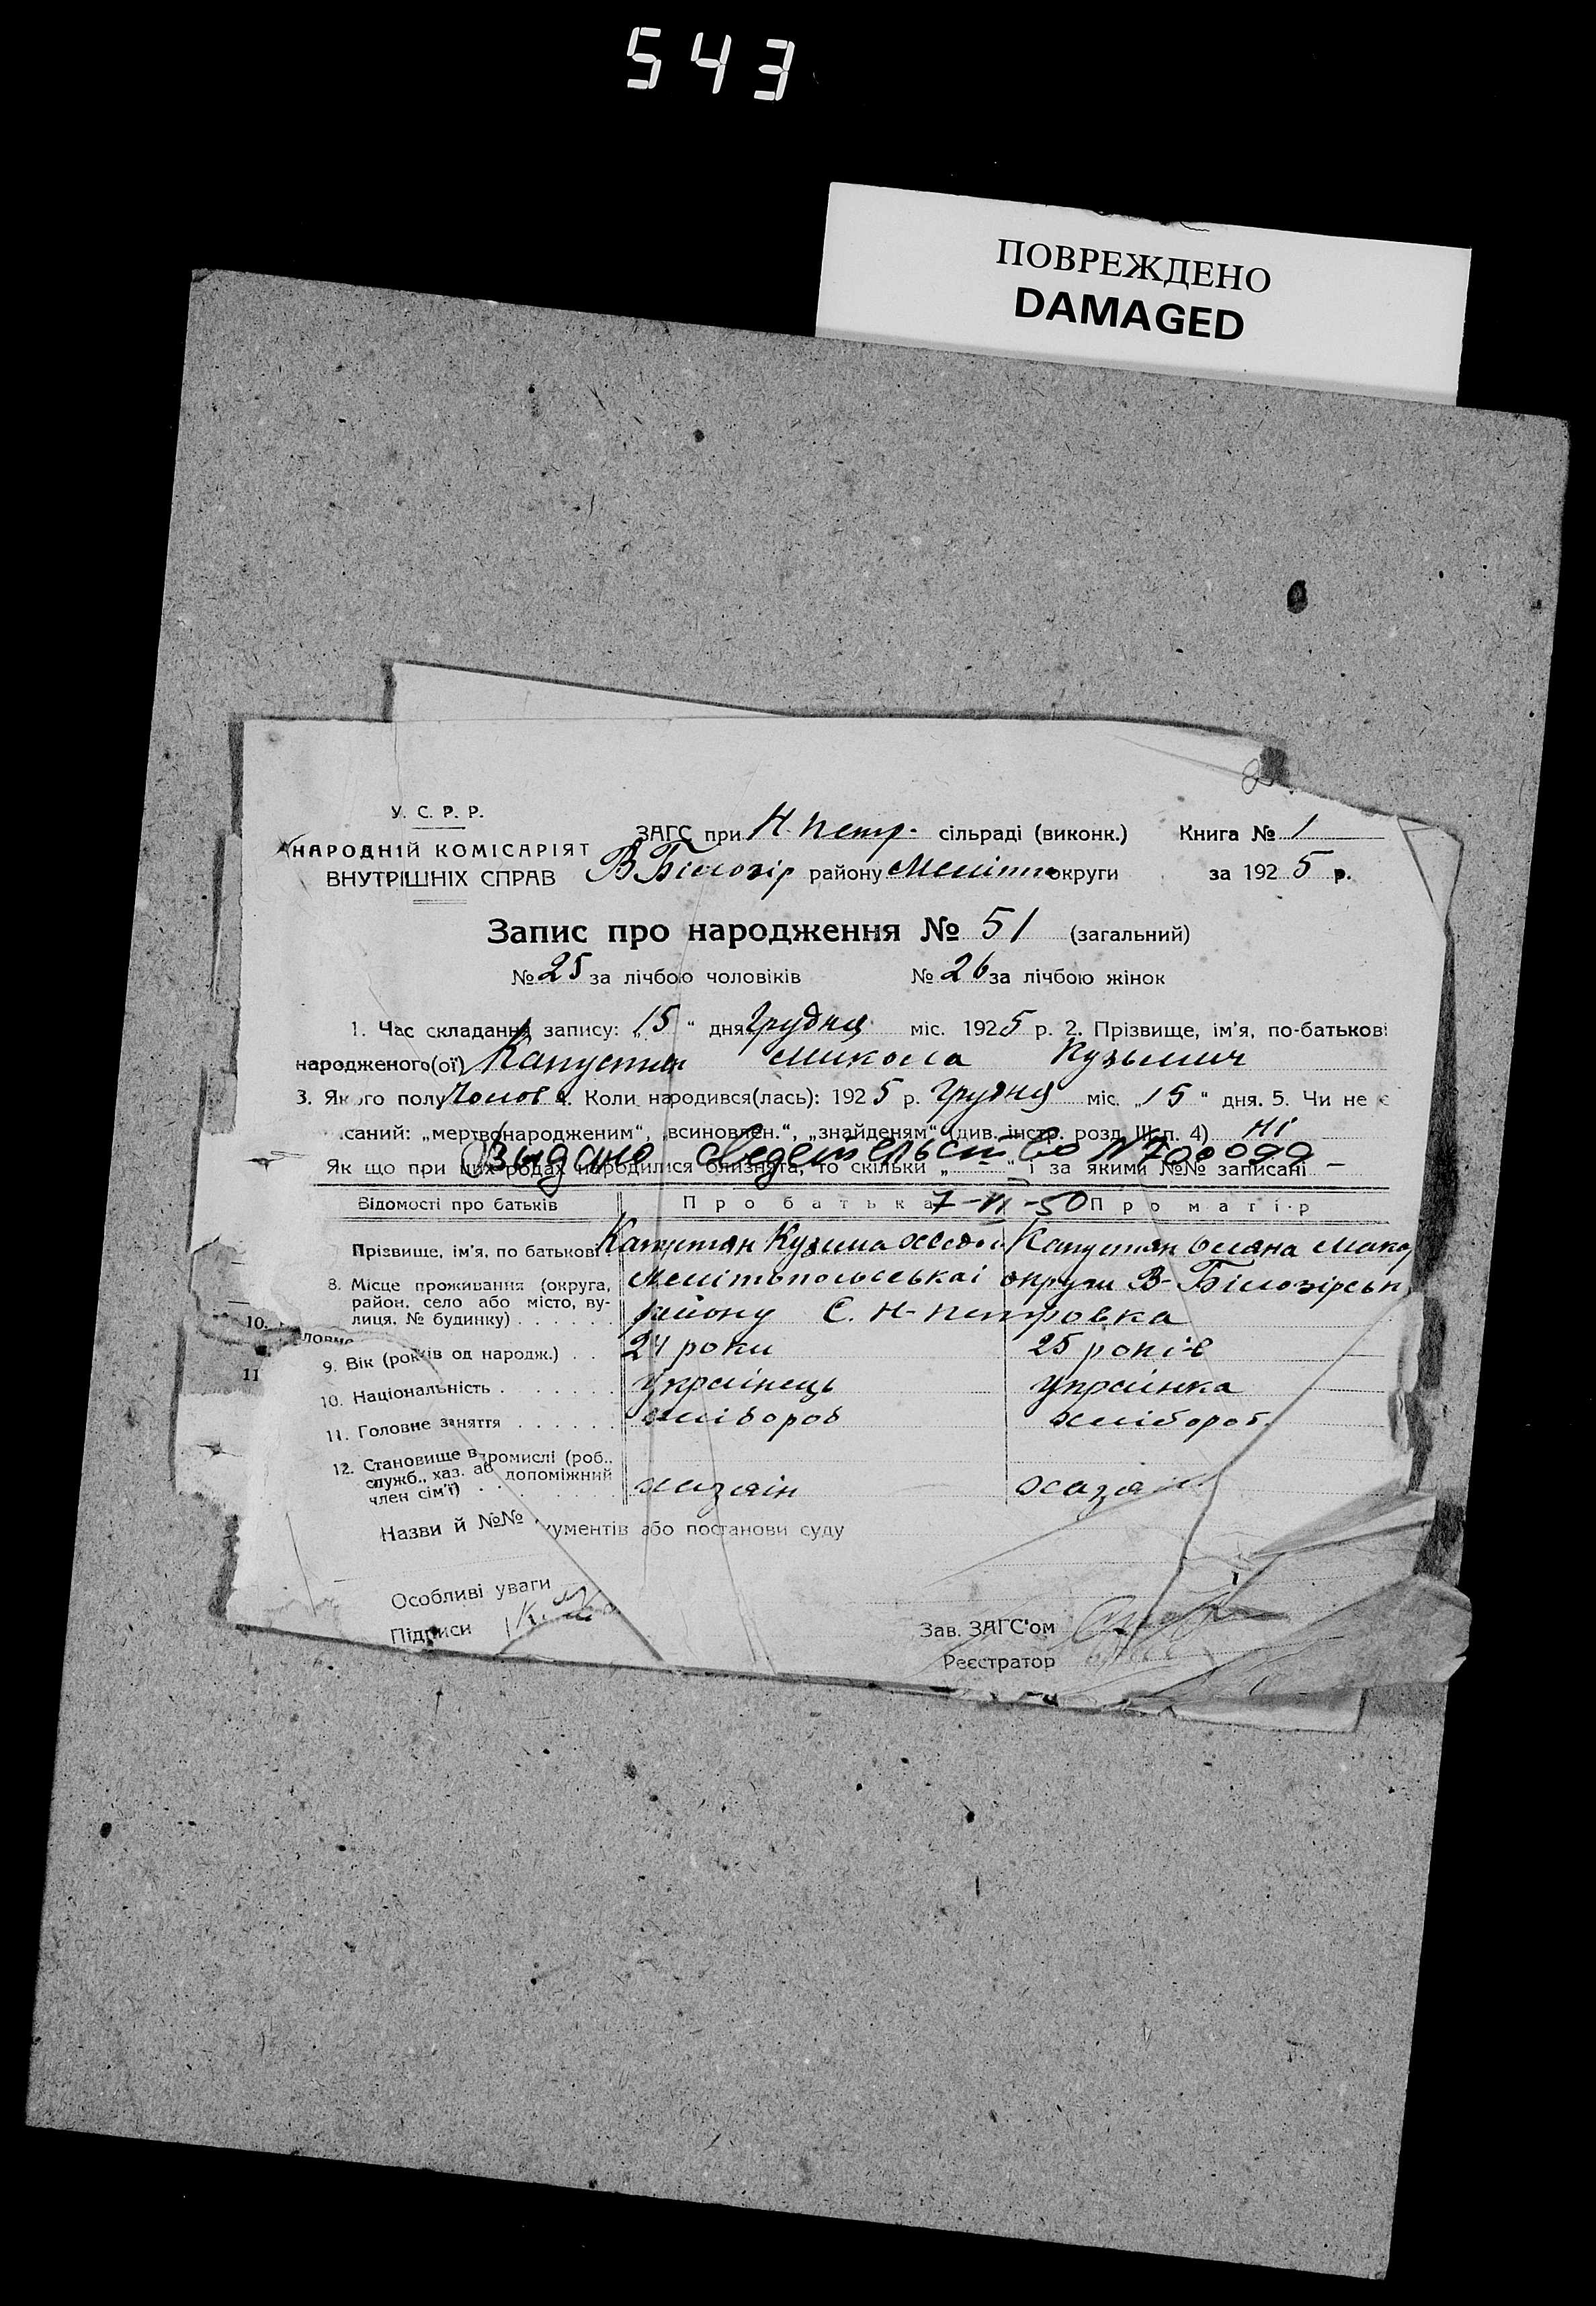 543
ПОВРЕЖДЕНО
DAMAGED
У. С. Р. Р.
НАРОДНІЙ КОМІСАРІЯТ
ВНУТРІШНІХ СПРАВ
ЗАГС при Н. Петр. сільраді (виконк.) Книга № 1
В Білозір району Меліто округи за 1925 р.
Запис про народження № 51 (загальний)
№ 25 за лічбою чоловіків № 26 за лічбою жінок
1. Час складання запису: „15“ дня Грудня міс. 1925 р. 2. Прізвище, ім'я, по-батькові
народженого(ої) Капустян Микола Кузьмич
3. Якого полу Чолов. Коли народився(лась): 1925 р. Грудня міс. „15“ дня. 5. Чи не є
саний: „мертвонародженим“, „всиновлен.“, „знайденям“ (див. інстр. розд. III п. 4) Ні
Выдано сведетельство № 700099
Як що при цих родах народилися близнята, то скільки „ “ і за якими №№ записані –
7-VI-50
Відомості про батьків Про батька Про матір
Прізвище, ім'я, по батькові Капустян Кузьма Капустян Оляна Мака
8. Місце проживання (округа, район, село або місто, вулиця, № будинку) Мелітопольськаі округи В-Білозірськ
району С. Н-Петровка
10.
11
9. Вік (років од народж.) 24 роки 25 років
10. Національність Українець Українка
11. Головне заняття хлібороб хлібороб.
12. Становище в промислі (роб., служб., хаз. аб допоміжний член сім'ї) хазяїн хазя
Назви й №№ кументів або постанови суду
Особливі уваги
Підписи
Зав. ЗАГС'ом
Реєстратор